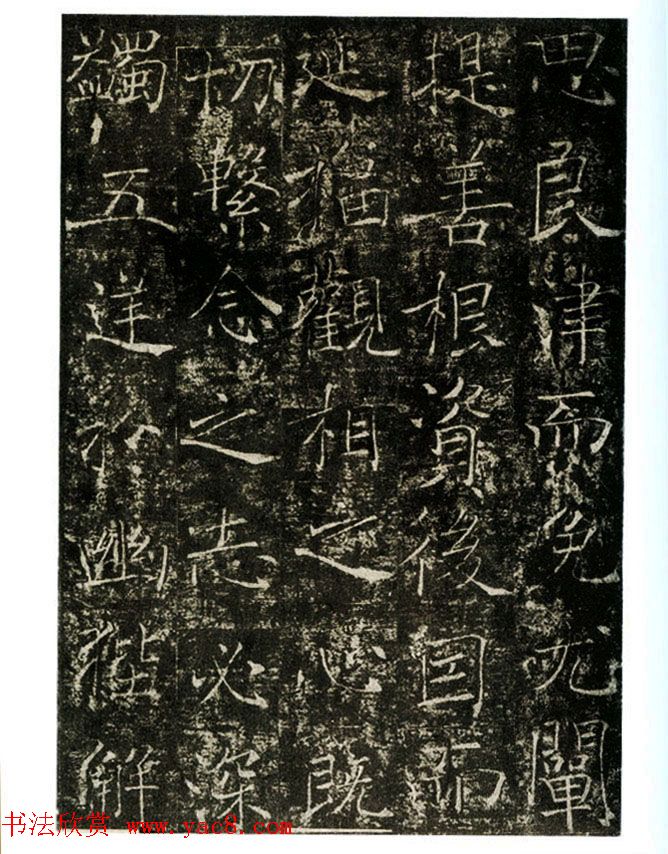 思良津而免尤闡
提善根資後因而
延福觀相之心既
切繫念之志必深
蠲五逆於幽解
书法欣赏 www.yac8.com